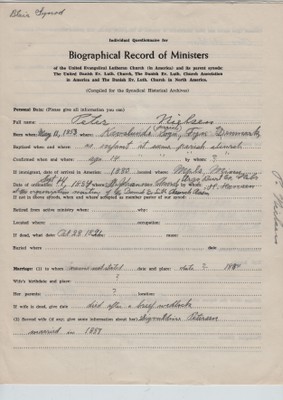 Blair Synod
Individual Questionnaire for
Biographical Record of Ministers
of the United Evangelical Lutheran Church (in America) and its parent synods:
The United Danish Ev. Luth. Church, The Danish Ev. Luth. Church Association
in America and The Danish Ev. Luth. Church in North America.
(Compiled for the Synodical Historical Archives)
Personal Data: (Please give all information you can)
Full name Peter Nielsen
Born when: May 11, where: parish Fyn, Denmark
Baptised when and where: as infant it seems parish church
Confirmed when and where: age 14 by whom: ?
If immigrant, date of arrival in America: 1880 located where:
Date of ordination: Sept 14, where: by whom:
at the organization meeting of the
If not in above synods, when and where accepted as member pastor of our synod:
Retired from active ministry when: why:
Located where: occupation:
If dead, what date: Oct 28 where:
Buried where date
Marriage: (1) to whom: name not stated date and place: date ? 1884
Wife's birthdate and place: ?
Her parents: ? location:
If wife is dead, give date died after a brief wedlock
(2) Second wife (if any, give same information about her), Petersen
married in 1889
P. Nielsen